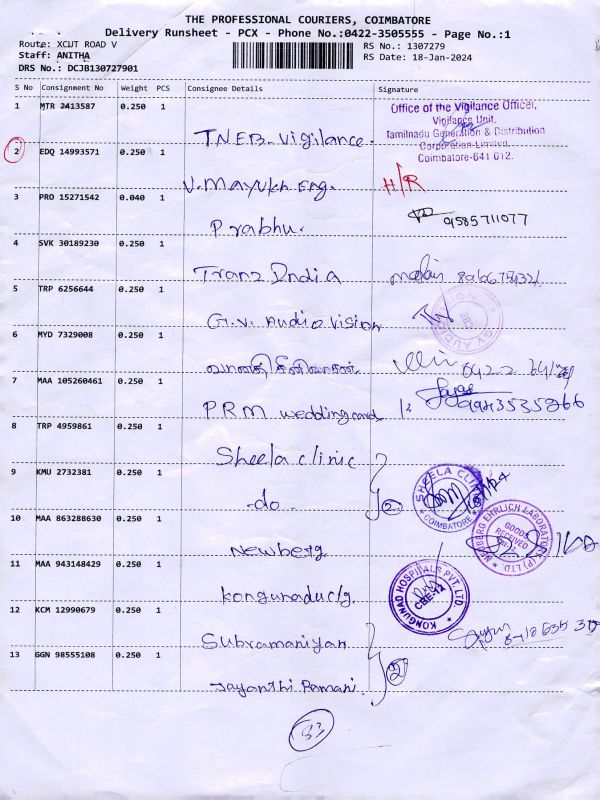 THE PROFESSIONAL COURIERS, COIMBATORE
Delivery Runsheet - PCX - Phone No.:0422-3505555 - Page No.:1
Route: XCUT ROAD V
RS No.: 1307279
Staff: ANITHA
RS Date: 18-Jan-2024
DRS No.: DCJB130727901
S No Consignment No Weight PCS Consignee Details Signature
1 MTR 2413587 0.250 1 T.N.E.B. Vigilance.
Office of the Vigilance Officer,
Vigilance Unit,
Tamilnadu Generation & Distribution
Corporation Limited,
Coimbatore-641 012.
2 EDQ 14993571 0.250 1 V. Mayukh Eng. H/R
3 PRO 15271542 0.040 1 Prabhu. 9585711077
4 SVK 30189230 0.250 1 Tranz India
5 TRP 6256644 0.250 1 G.V. Audio Vision
6 MYD 7329008 0.250 1 வானதி சீனிவாசன் 0422
7 MAA 105260461 0.250 1 PRM wedding cards 9943535266
8 TRP 4959861 0.250 1 Sheela clinic
9 KMU 2732381 0.250 1 -do- 2
SHEELA CLINIC
COIMBATORE
10 MAA 863288630 0.250 1 Newberg
NEUBERG EHRLICH LABORATORY (P) LTD
GOODS
RECEIVED
11 MAA 943148429 0.250 1 Kongunadu
KONGUNAD HOSPITALS PVT. LTD
CBE-12
12 KCM 12990679 0.250 1 Subramaniyan
13 GGN 98555108 0.250 1 Jayanthi Ramani. 2